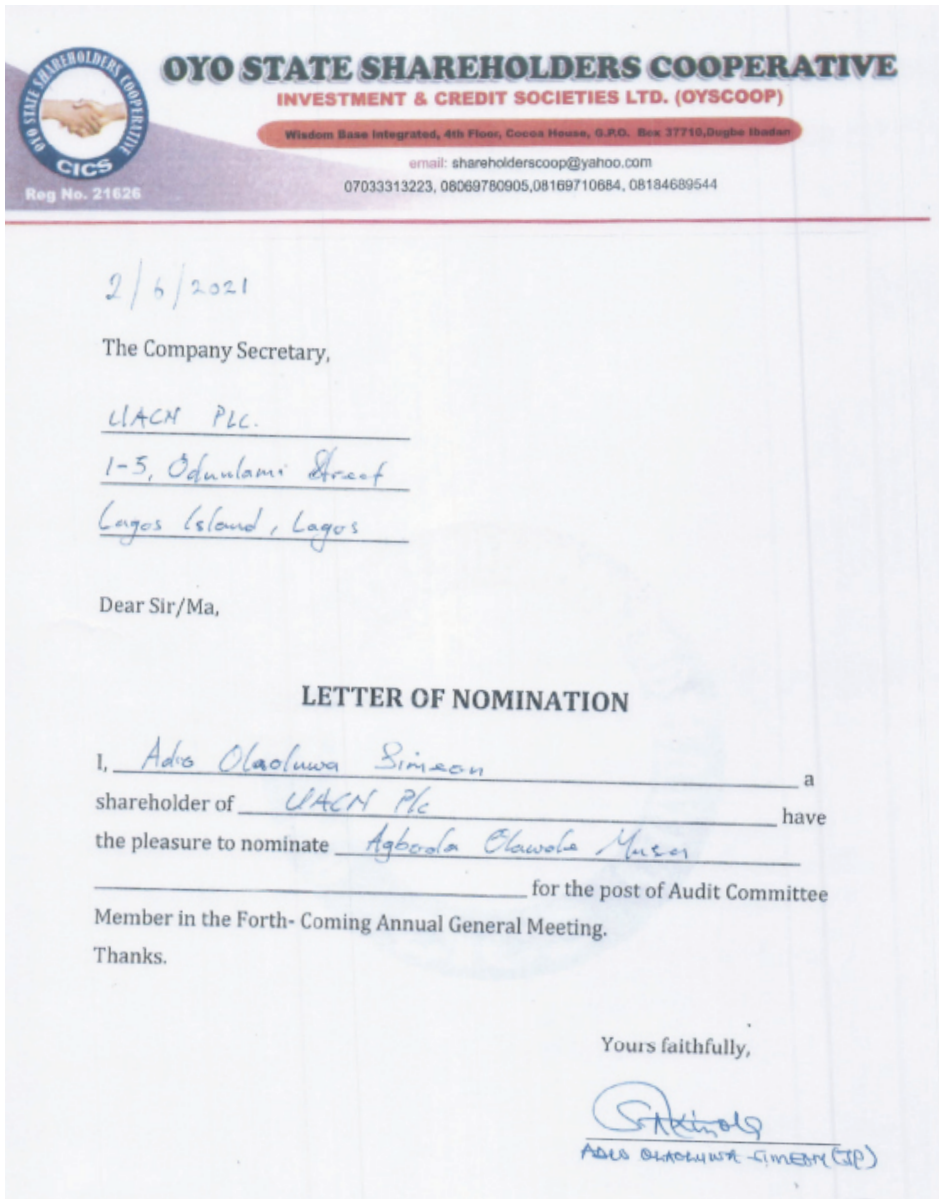 OYO STATE SHAREHOLDERS COOPERATIVE
CICS
Reg No. 21626
OYO STATE SHAREHOLDERS COOPERATIVE
INVESTMENT & CREDIT SOCIETIES LTD. (OYSCOOP)
Wisdom Base Integrated, 4th Floor, Cocoa House, G.P.O. Box 37710,Dugbe Ibadan
email: shareholderscoop@yahoo.com
07033313223, 08069780905,08169710684, 08184689544
2/6/2021
The Company Secretary,
UACN PLC.
1-5, Odunlami Street
Lagos Island, Lagos
Dear Sir/Ma,
LETTER OF NOMINATION
I, Adio Olaoluwa Simeon a
shareholder of UACN Plc have
the pleasure to nominate Agboola Olawole Musa
for the post of Audit Committee
Member in the Forth- Coming Annual General Meeting.
Thanks.
Yours faithfully,
ADIO OLAOLUWA SIMEON (JP)